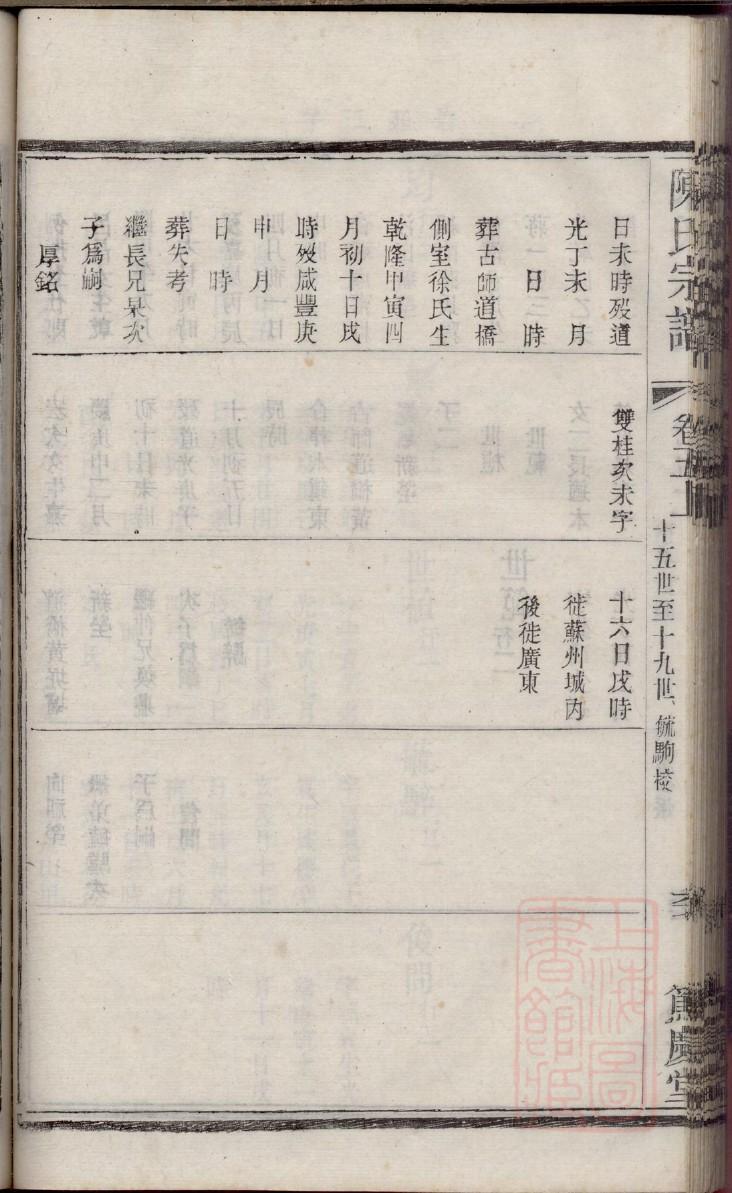 陳氏宗譜
卷五上
十五世至十九世
毓駒校
篤慶堂
日未時歿道
光丁未 月
日 時
葬古師道橋
側室徐氏生
乾隆甲寅四
月初十日戌
時歿咸豐庚
申 月
日 時
葬失考
繼長兄杲次
子爲嗣
厚銘
雙桂次未字
十六日戌時
徙蘇州城內
後徙廣東
上海圖
書館藏